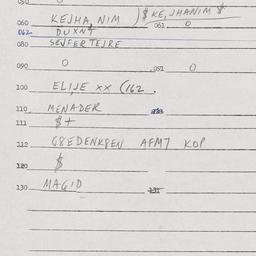 050
060 KEJHA, NIM )$ KE, JHANIM $
061 0
062 DUXN$
080 SEJFERTEJRE
090 0 091 0
100 ELIJE XX (162.
110 MENADER
111 $+
112 G8EDENK8EN AFM7 KOP
120 $
130 MAGID 131